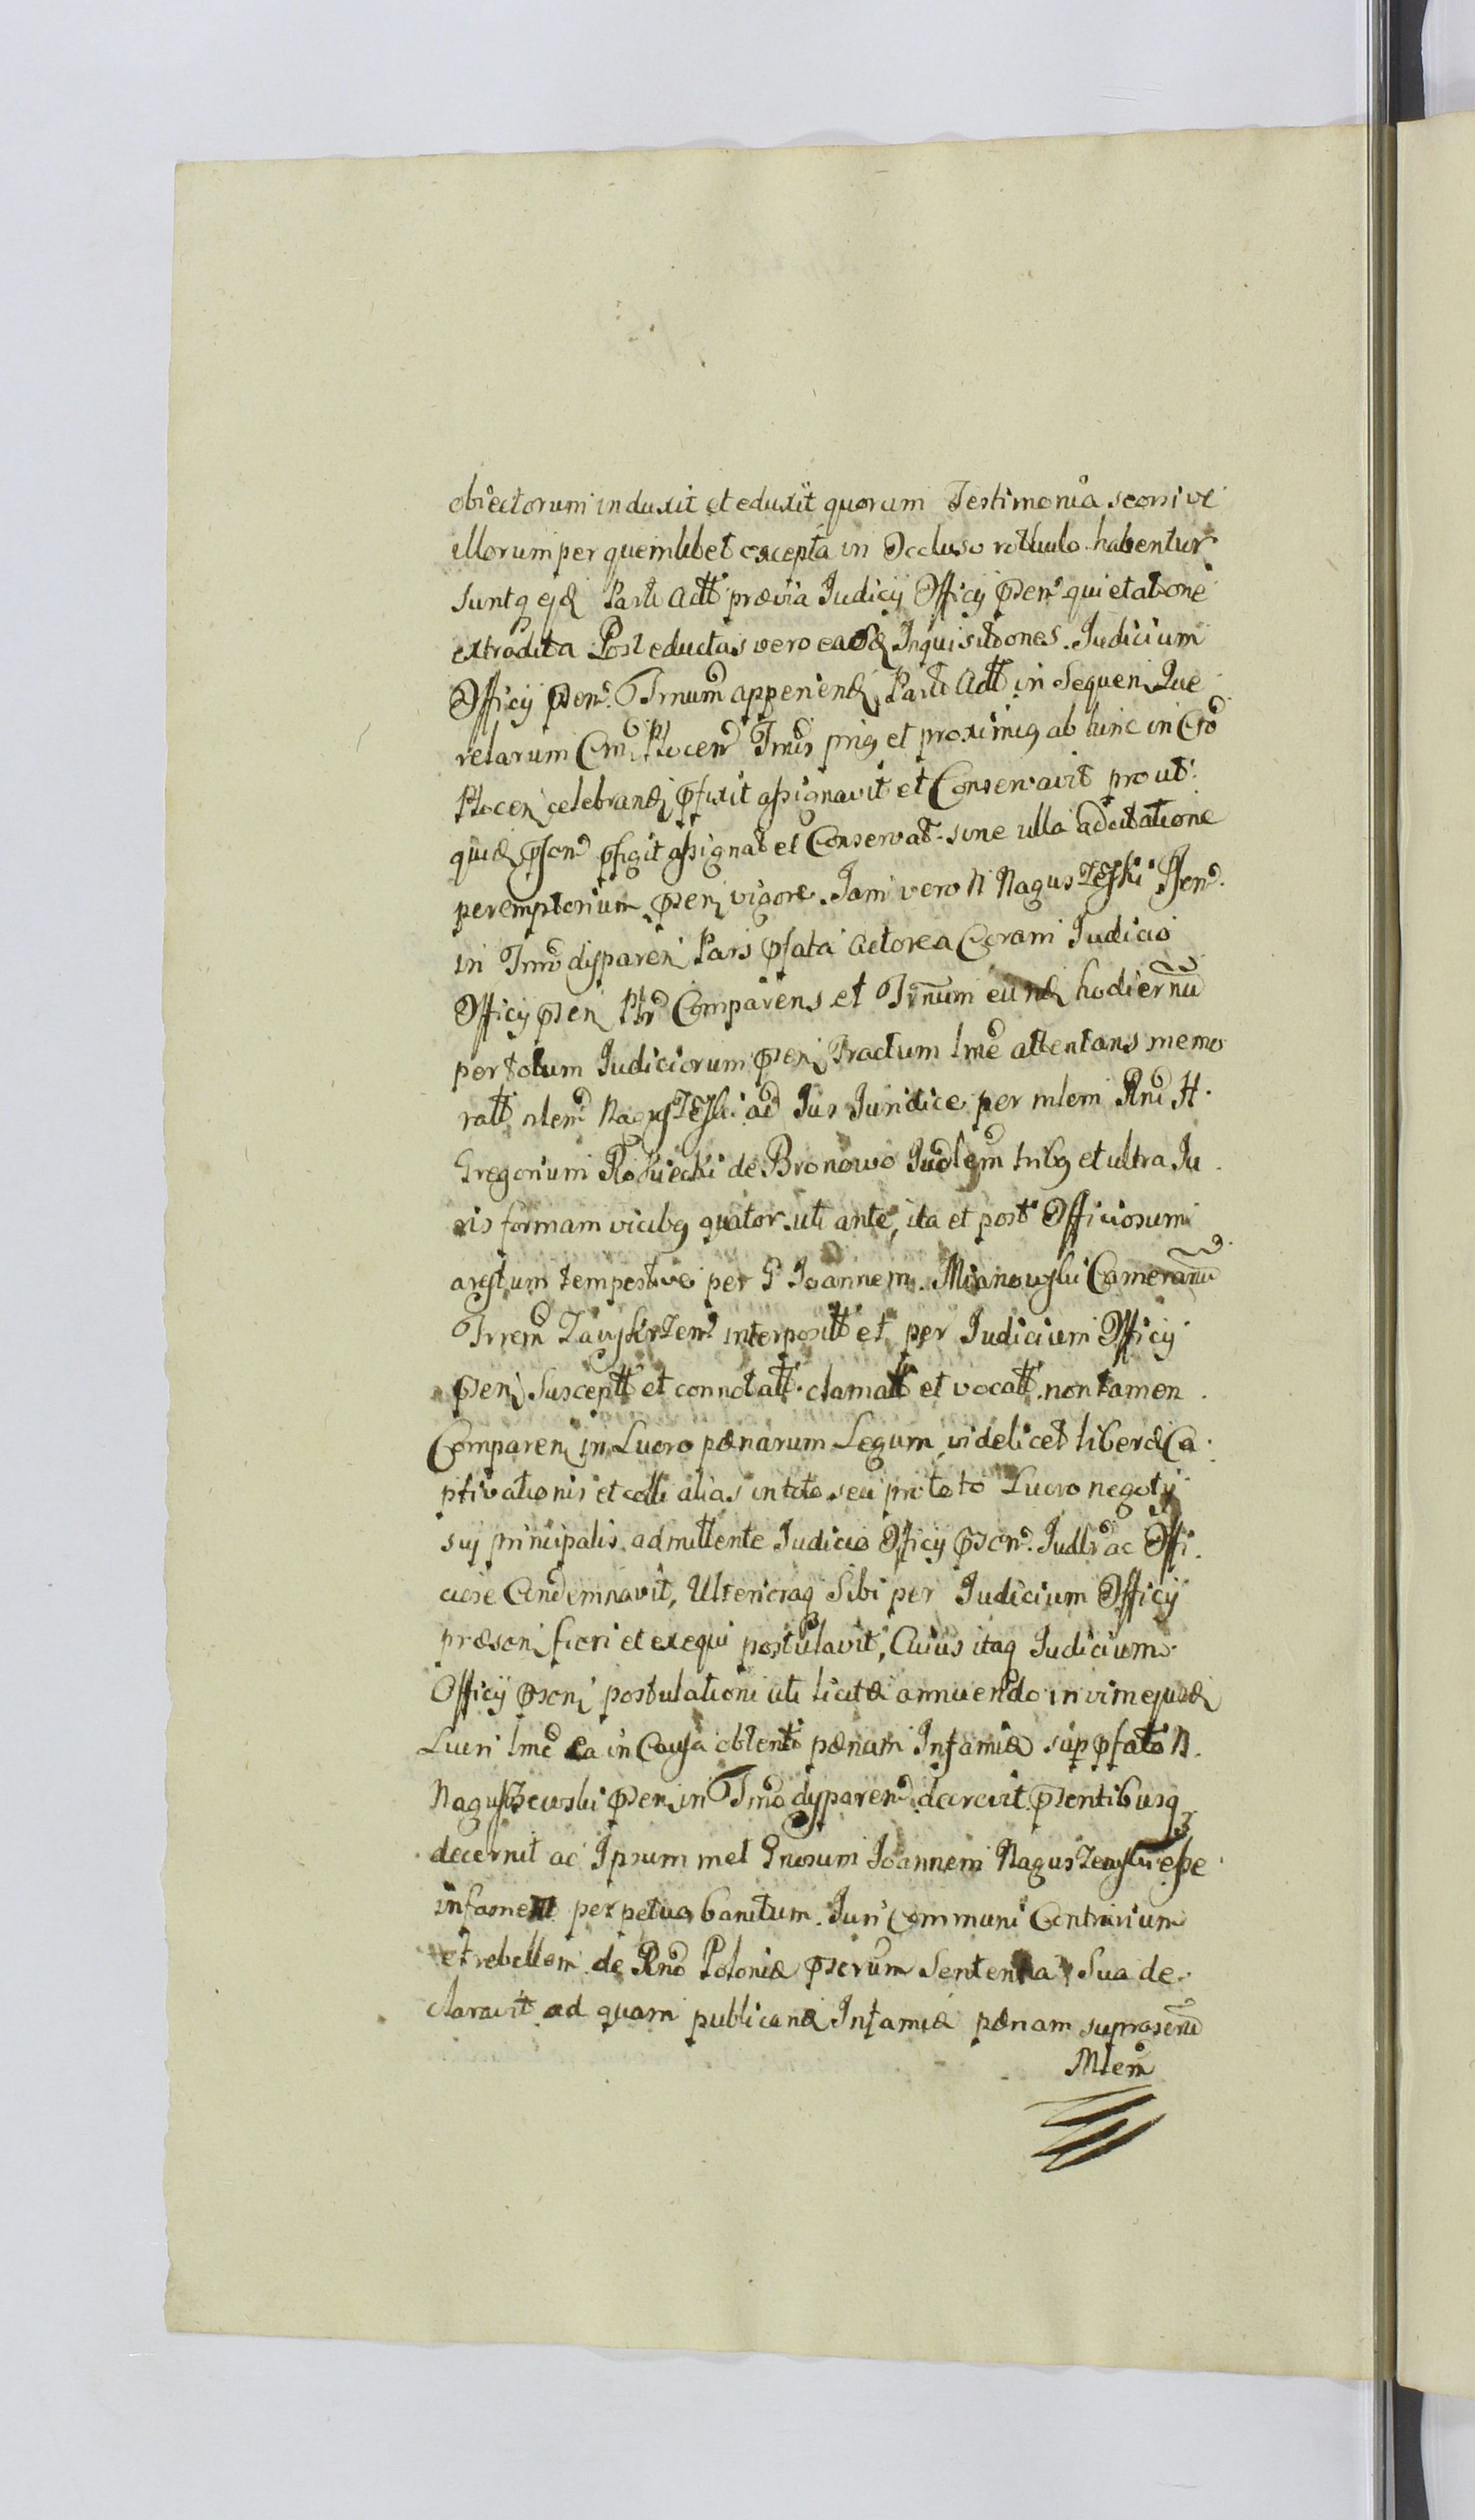 obiectorum induxit et eduxit quorum Testimonia seorsive
illorum per quemlibet excepta in Occluso rothulo habentur
Suntq ejd Parti Actt prævia Judicij Officij pñen quietatione
extradita Post eductas vero easd Inquisitiones. Judicium
Officij pñen. Trnum apperiend Parti Actt in Sequen Que
relarum Plocen Trmis prig et proximig ab hinc in Cro
Plocen celebrand pfixit assignavit et Conservavit prout
quid pñen pfigit assignat et Conservat sine ulla adcitatione
peremptorium pñen vigore. Jam vero N Naguszeski
in Trmo disparen Pars pfata Actorea Coram Judicio
Officij pñen Comparens et Trnum eund hodiernũ
per totum Judiciorum pñen Tractum lme attentans memo
ratt Naguszeski ad Jus Juridice per mlem Rni H.
Gregorium Robiecki de Bronowo Judlem tribg et ultra Ju
ris formam vicibg quator uti ante, ita et post Officiosum
arestum tempestive per G Joannem Mianowski Camerarũ
Trrem Zawskrzen interpositt et per Judicium Officij
pñen Susceptt et connotatt clamatt et vocatt non tamen
Comparen in Lucro pænarum Legum videlicet liberæ Ca
ptivationis et colli alias in toto seu pro toto Lucro negotij
sui principalis admittente Judicio Officij pñen. Judlr ac Offi
ciose Condemnavit, Ulterioraq Sibi per Judicium Officij
præsen fieri et exequi postulavit, Cuius itaq Judicium
Officij pñen postulationi uti licitæ annuendo in vim ejusd
Lucri lme ea in Causa obtenti pænam Infamiæ sup pfato N.
Naguszewski pñen in Trmo disparen decrevit pñentibusq
decernit ac Ipsum met Gnosum Joannem Naguszewski esse
infamem perpetuo banitum Juri Communi Contrarium
et rebellem de Rno Poloniæ Sententia Sua de
claravit ad quam publicand Infamiæ pænam
Mlem